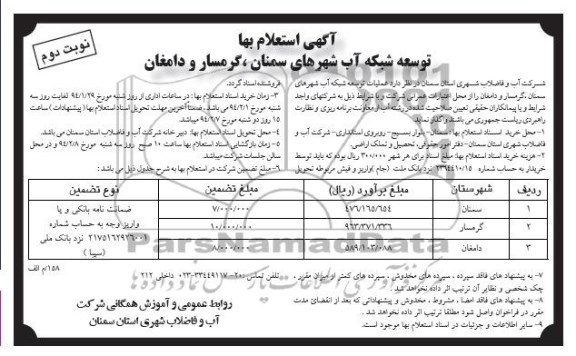 آگهی استعلام بها
نوبت دوم
توسعه شبکه آب شهرهای سمنان ،گرمسار و دامغان
شرکت آب و فاضلاب شهری استان سمنان در نظر دارد عملیات توسعه شبکه آب شهرهای
سمنان ،گرمسار و دامغان را از محل اعتبارات عمرانی شرکت و با شرایط ذیل به شرکتهای واجد
شرایط و یا پیمانکاران حقیقی تعیین صلاحیت شده در رشته آب از معاونت برنامه ریزی و نظارت
راهبردی ریاست جمهوری می باشند واگذار نماید.
۱- محل خرید اسناد استعلام بها: سمنان- بلوار بسیج- روبروی استانداری- شرکت آب و
فاضلاب شهری استان سمنان- دفتر امور حقوقی، تحصیل و تملک اراضی.
۲- هزینه خرید اسناد استعلام بها: مبلغ اسناد برای هر شهر ۳۰۰/۰۰۰ ریال بوده که باید توسط
خریدار به حساب شماره ۲۳۹۴۴۱۰/۱۵ نزد بانک ملت (جام )واریز و فیش مربوطه تحویل
فروشنده اسناد گردد.
۳- زمان خرید اسناد استعلام بها : در ساعات اداری از روز شنبه مورخ ۹۴/۱/۲۹ لغایت روز سه
شنبه مورخ ۹۴/۲/۱ می باشد. ضمنا آخرین مهلت تحویل اسناد استعلام بها( پیشنهادات ) ساعت
۱۵ روز دو شنبه مورخ ۹۴/۲/۷ میباشد.
۴- محل تحویل اسناد استعلام بها: دبیرخانه شرکت آب و فاضلاب استان سمنان می باشد.
۵- زمان بازگشایی اسناد استعلام بها ساعت ۱۰ صبح روز سه شنبه مورخ ۹۴/۲/۸ و در محل
سالن جلسات شرکت میباشد.
۶- مبلغ تضمین شرکت در استعلام بها به شرح جدول ذیل می باشد :
ردیف شهرستان مبلغ برآورد (ریال) مبلغ تضمین نوع تضمین
۱ سمنان ۴۷۶/۱۶۵/۶۵۴ ۷/۰۰۰/۰۰۰
۲ گرمسار ۹۶۳/۳۷۱/۳۳۶ ۱۰/۰۰۰/۰۰۰
۳ دامغان ۵۸۹/۱۰۳/۰۸۸ ۸/۰۰۰/۰۰۰
ضمانت نامه بانکی و یا
واریز وجه به حساب شماره
۲۱۷۵۱۶۲۹۲۶۰۰۱ نزد بانک ملی
(سیبا )
۱۵۸/م الف
۷- به پیشنهاد های فاقد سپرده ، سپرده های مخدوش ، سپرده های کمتر از میزان مقرر ،
چک شخصی و نظایر آن ترتیب اثر داده نخواهد شد.
۸- به پیشنهاد های فاقد امضا ، مشروط ، مخدوش و پیشنهاداتی که بعد از انقضای مدت
مقرر در فراخوان واصل شود مطلقا ترتیب اثر داده نخواهد شد .
۹- سایر اطلاعات و جزئیات در اسناد استعلام بها موجود است.
تلفن تماس :۲۰-۳۳۴۴۹۱۱۷-۰۲۳ داخلی ۲۱۲
روابط عمومی و آموزش همگانی شرکت
آب و فاضلاب شهری استان سمنان
ParsNamadData